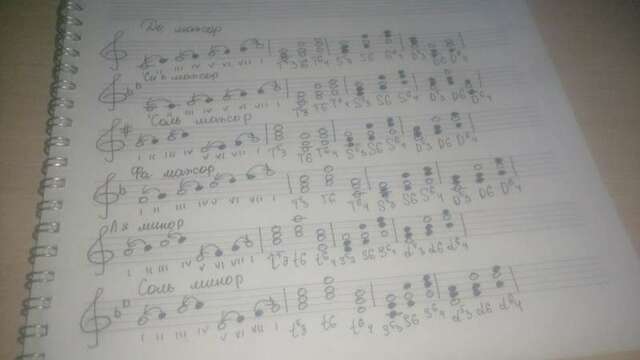 До мажор
I II III IV V VI VII I T53 T6 T64 S53 S6 S64 D53 D6 D64
Сиb мажор
I II III IV V VI VII I T53 T6 T64 S53 S6 S64 D53 D6 D64
Соль мажор
I II III IV V VI VII I T53 T6 T64 S53 S6 S64 D53 D6 D64
Фа мажор
I II III IV V VI VII I T53 T6 T64 S53 S6 S64 D53 D6 D64
Ля минор
I II III IV V VI VII I t53 t6 t64 s53 s6 s64 d53 d6 d64
Соль минор
I II III IV V VI VII I t53 t6 t64 s53 s6 s64 d53 d6 d64